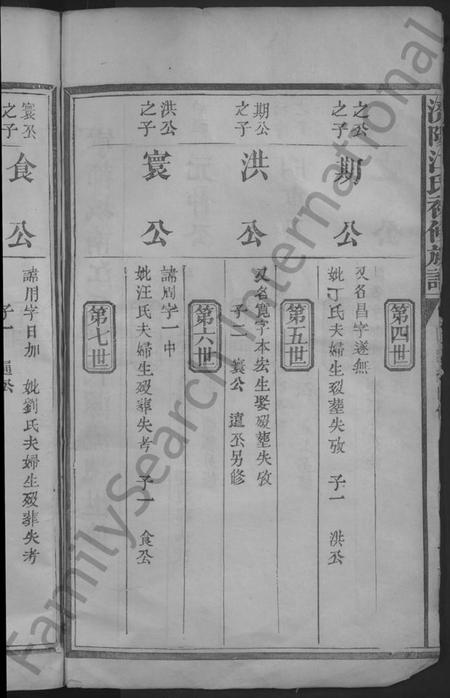 濟陽江氏初修族譜
第四世
之公
之子
期公
又名昌字遂無
妣丁氏夫婦生歿塟失攷 子一 洪公
第五世
期公
之子
洪公
又名寬字本宏生娶歿塟失攷
子一 寰公 遺丕另修
第六世
洪公
之子
寰公
諱用字一中
妣汪氏夫婦生歿葬失考 子一 食公
第七世
寰公
之子
食公
諱用字日加 妣劉氏夫婦生歿葬失考
子一
FamilySearch International